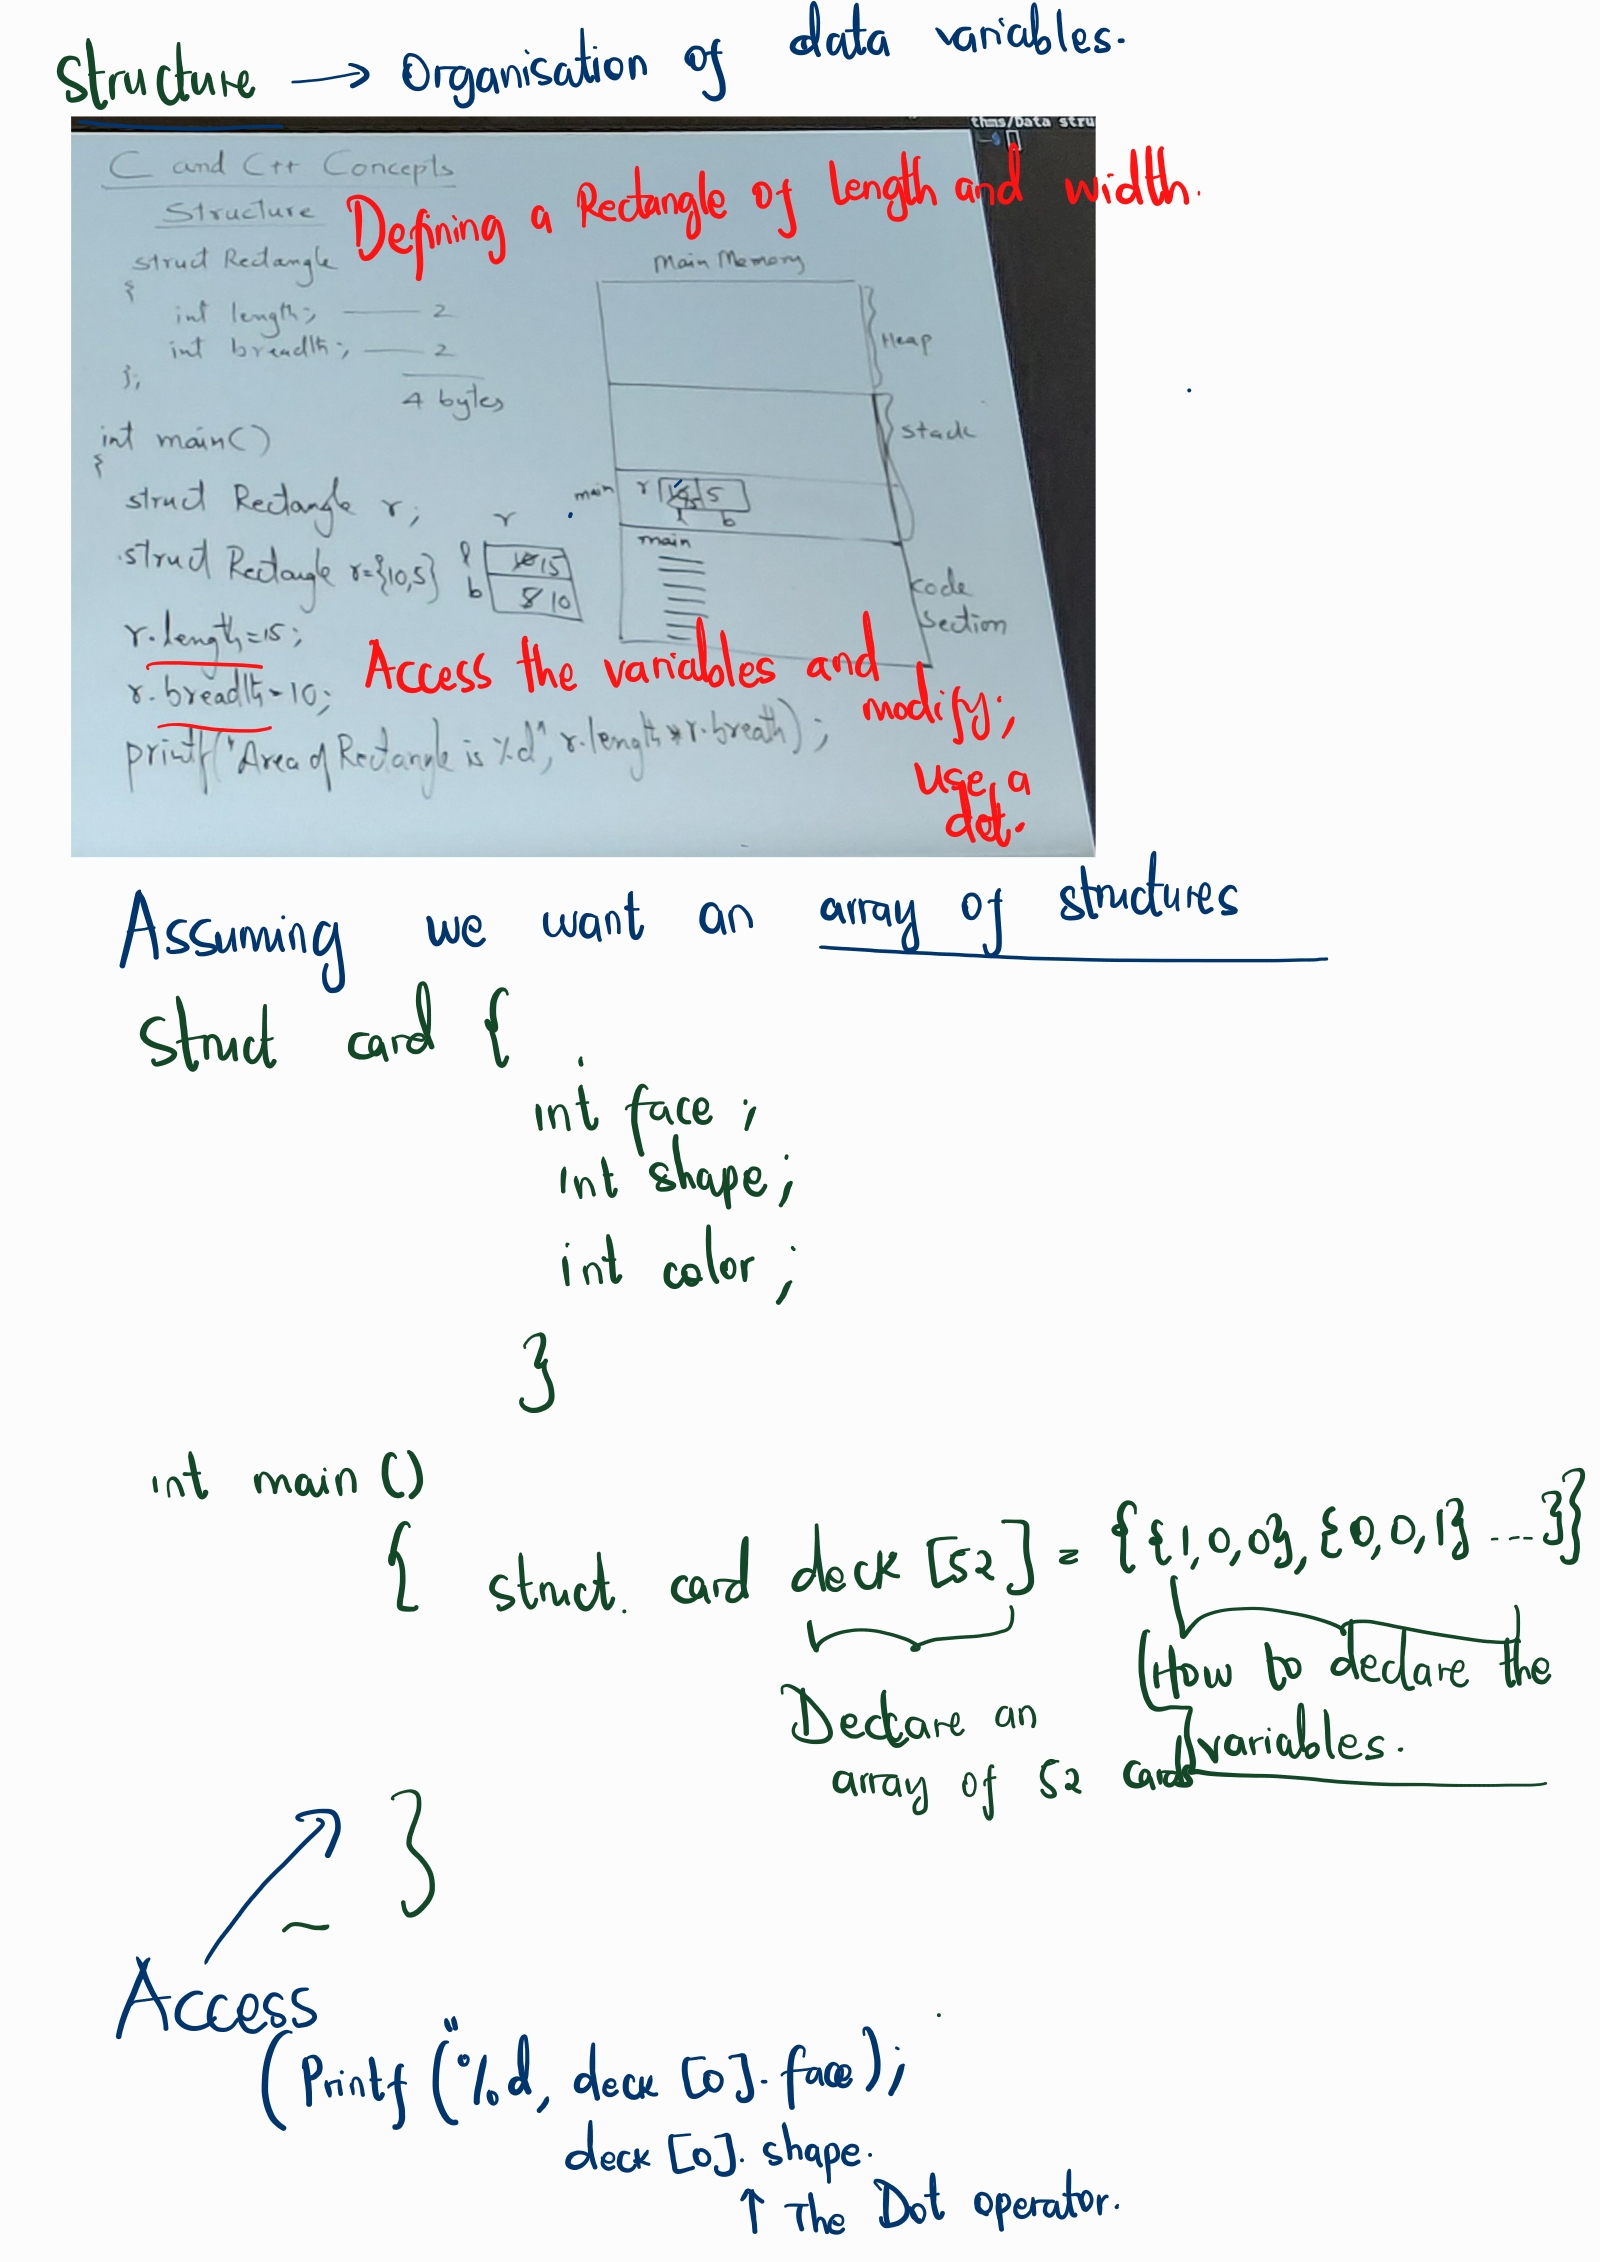 Structure → Organisation of data variables.
thms/Data stru
C and C++ Concepts
Structure
Defining a Rectangle of length and width.
struct Rectangle
{
int length; — 2
int breadth; — 2
};
4 bytes
Main Memory
Heap
Stack
int main()
{
struct Rectangle r;
main r 5
l b
struct Rectangle r={10,5}
r
l 10 15
b 8 10
main
Code
Section
r.length=15;
r.breadth=10;
Access the variables and
modify;
use a
dot.
printf("Area of Rectangle is %d", r.length * r.breath);
Assuming we want an array of structures
Struct card {
int face ;
int shape ;
int color ;
}
int main ()
{ struct. card deck [52] = {{1,0,0}, {0,0,1} ...}}
Declare an
array of 52 cards
(How to declare the
variables.
}
Access
(Printf ("%d, deck [0]. face);
deck [0]. shape.
↑ The Dot operator.